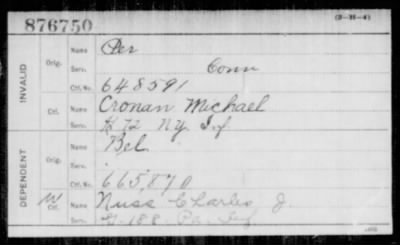 (3-H-4)
876750
INVALID
Orig.
Name Per
Serv. Conn
Ctf. No. 648591
Ctf.
Name Cronan Michael
Serv. H 72 Ny. Inf
DEPENDENT
Orig.
Name Bel
Serv.
Ctf. No. 665870
W Ctf.
Name Nuss Charles J.
Serv. G-188 Pa. Inf